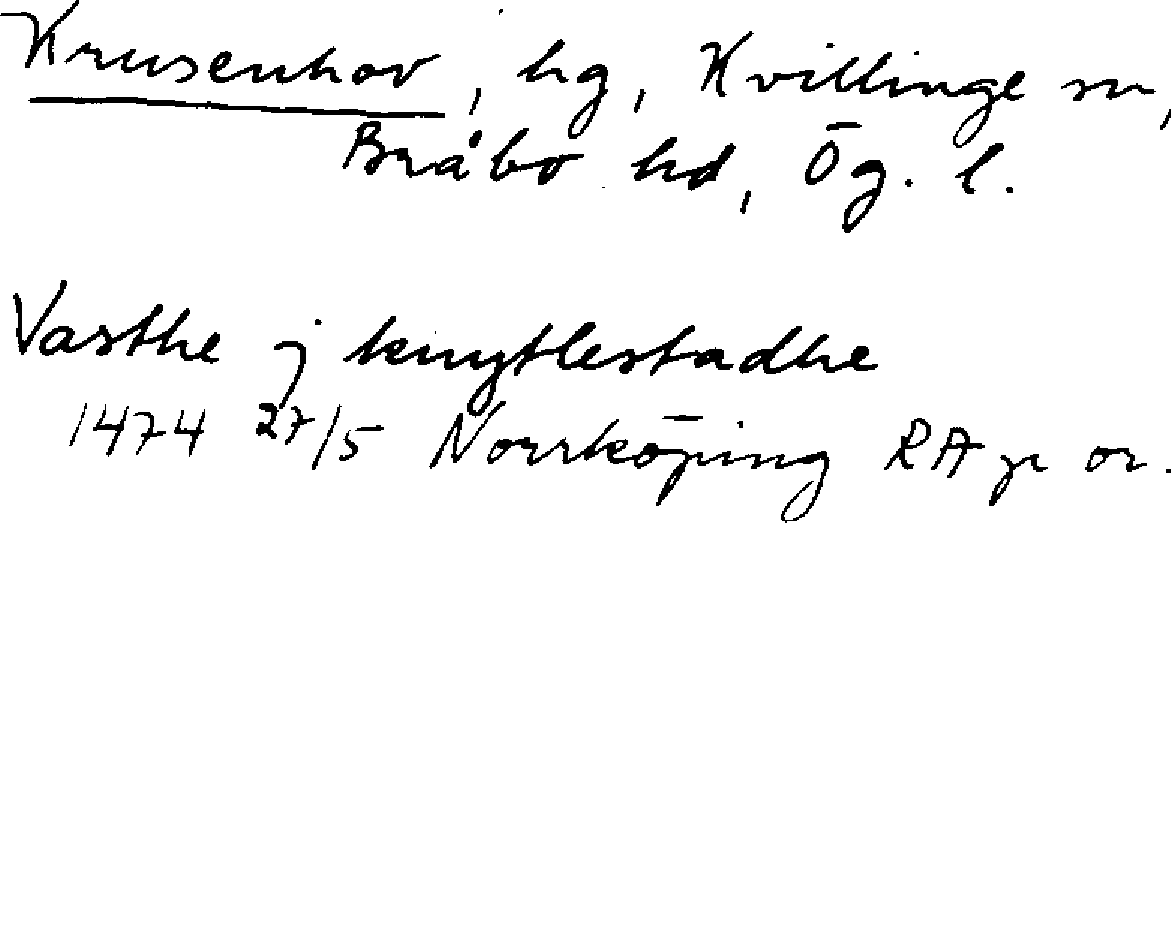 Krusenhov, hg, Kvillinge sn,
Bråbo hd, Ög. l.
Vasthe j knytlestadhe
1474 27/5 Norrköping RA p or.